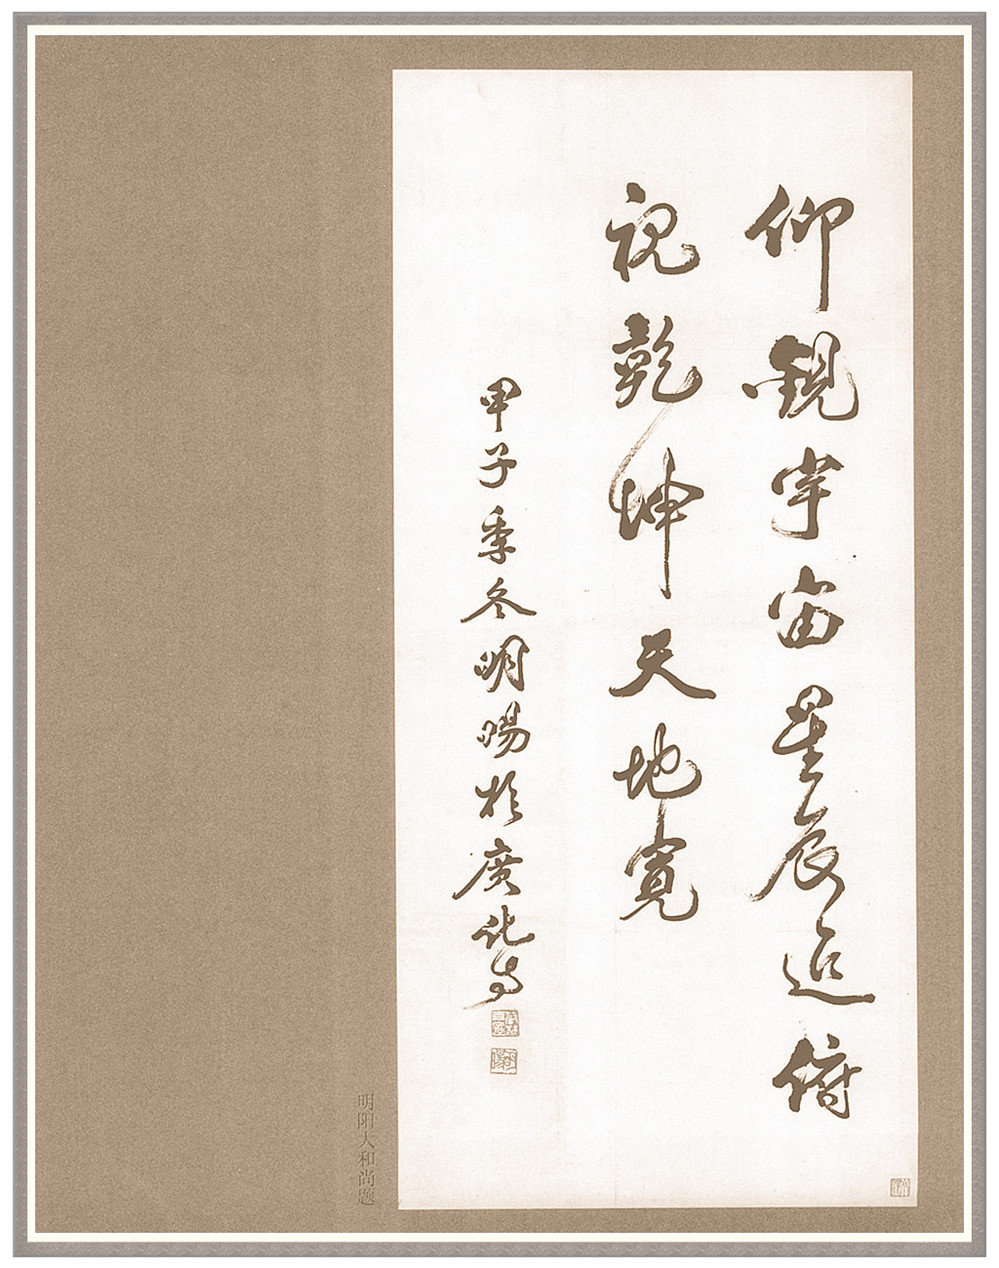 仰觀宇宙星辰近俯
視乾坤天地寬
甲子季冬明暘於廣化寺
明阳大和尚题